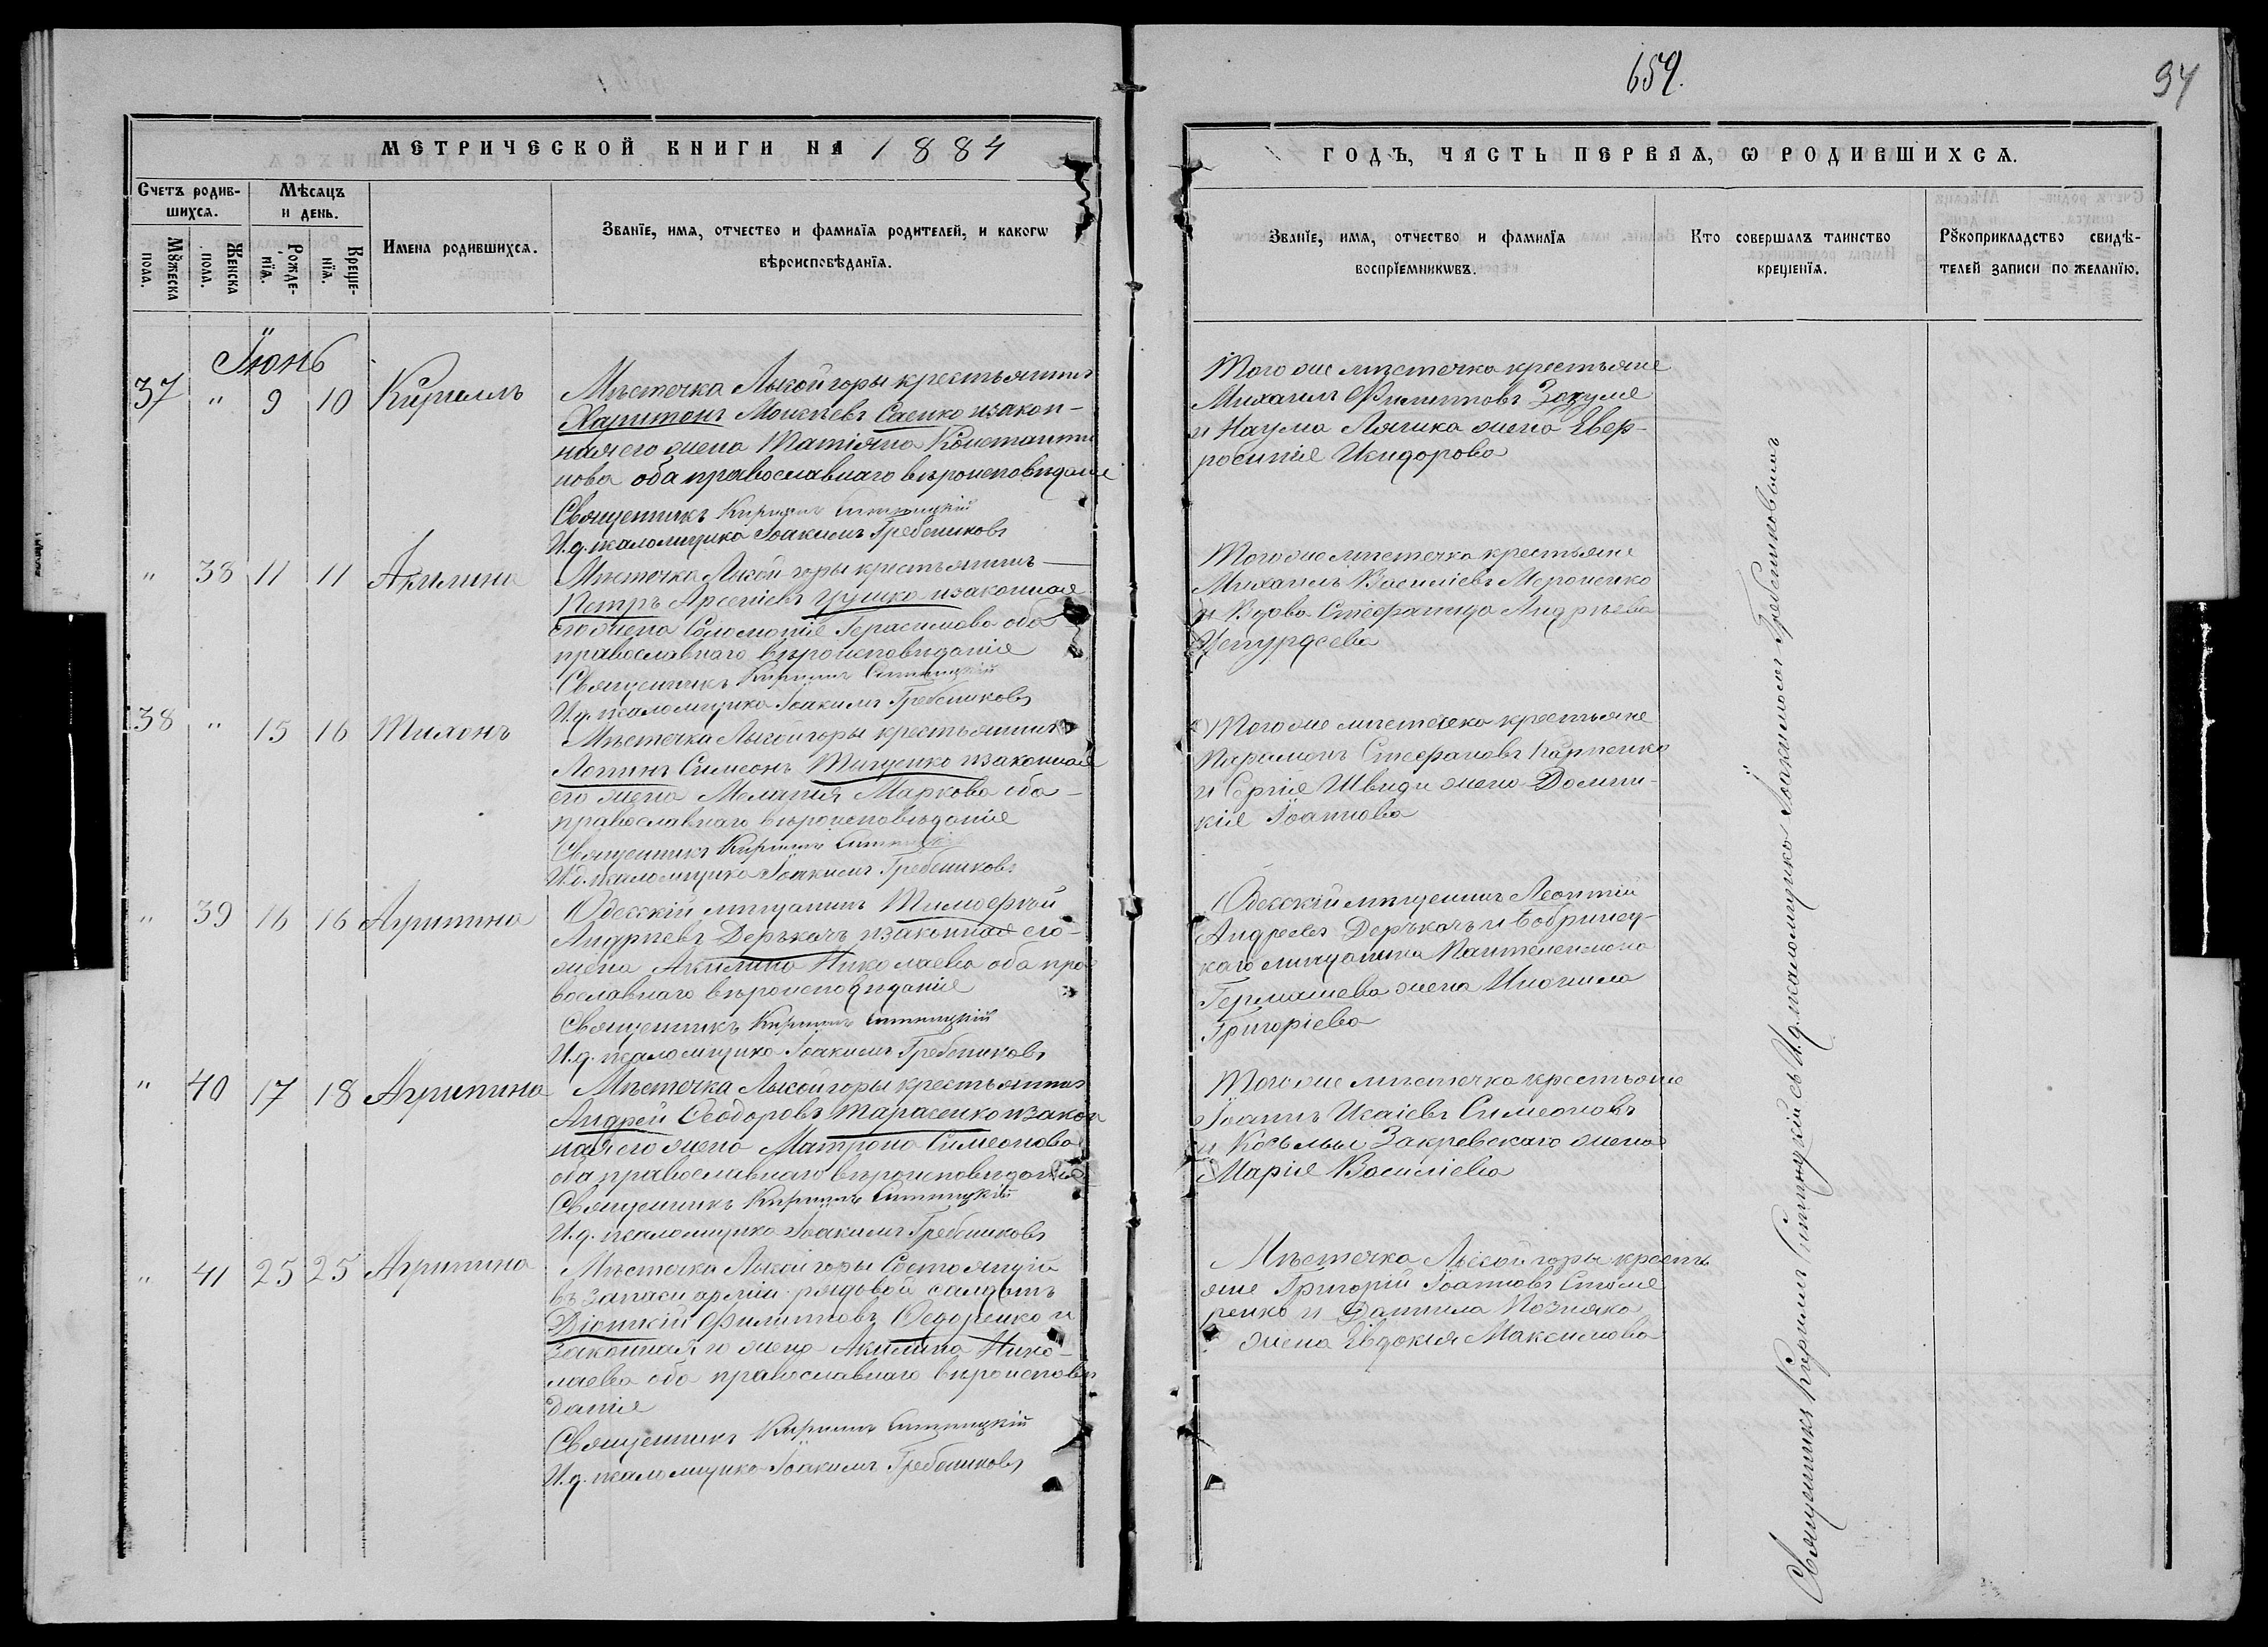 659.
94
МЕТРИЧЕСКОЙ КНИГИ НА 1884
ГОДЪ, ЧАСТЬ ПЕРВАЯ, Ѡ РОДИВШИХСЯ.
Счетъ родив-
шихся.
Мѣсяцъ
и день.
Мꙋжеска
пола.
Женска
пола.
Рожде-
нїя.
Креще-
нїя.
Имена родившихся.
Званїе, имя, отчество и фамилїя родителей, и какогѡ
вѣроисповѣданїя.
Званїе, имя, отчество и фамилїя
воспрїемникѡвъ.
Кто совершалъ таинство
крещенїя.
Рꙋкоприкладство свидѣ-
телей записи по желанїю.
Іюнь
37 " 9 10 Кирилъ
Мѣстечка Лысойгоры крестьянинъ
Харитонъ Моисѣевъ Саенко изакон-
ная его жена Татіяна Константи
нова оба православнаго вѣроисповѣданія
Священникъ Кирилъ
И.д. псаломщика Іоакимъ Гребениковъ
Того же мѣстечка крестьяне
Михаилъ Филиповъ Зозуля
и Наума Лягика жена Евер-
росинія Исидорова
" 38 11 11 Акилина
Мѣстечка Лысой горы крестьянинъ
Петръ Арсеніевъ Гушко изаконная
его жена Соломонія Герасимова оба
православнаго вѣроисповѣданія
Священникъ Кирилъ
И.д. псаломщика Іоакимъ Гребениковъ
Того же мѣстечка крестьяне
Михаилъ Василіевъ Мироненко
и Вдова Стефанида Андрѣева
Цепурдеева
38 " 15 16 Тихонъ
Мѣстечка Лысойгоры крестьянинъ
Лонинъ Симеонъ Тищенко изаконная
его жена Меланія Маркова оба
православнаго вѣроисповѣданія
Священникъ Кирилъ
И.д. псаломщика Іоакимъ Гребениковъ
Того же мѣстечка крестьяне
Парамонъ Стефановъ Карпенко
и Сергія Швиди жена Домни-
кія Іоаннова
" 39 16 16 Агрипина
Одесскій мѣщанинъ Тимофѣй
Андрѣевъ Деркачъ изаконная его
жена Акилина Николаева оба пра
вославнаго вѣроисповѣданія
Священникъ Кирилъ
И.д. псаломщика Іоакимъ Гребениковъ
Одесскій мѣщенинъ Леонтій
Андреевъ Деркачъ и Бобринец-
каго мѣщанина Пантелеимона
Гермашева жена
Григоріева
" 40 17 18 Агрипина
Мѣстечка Лысойгоры крестьянинъ
Андрей Ѳеодоровъ Тарасенко изакон
ная его жена Матрона Симеонова
оба православнаго вѣроисповѣданія
Священникъ Кирилъ
И.д. псаломщика Іоакимъ Гребениковъ
Того же мѣстечка крестьяне
Іоаннъ Исаіевъ Симеоновъ
и Косьмы Закревскаго жена
Марія Василіева
" 41 25 25 Агрипина
Мѣстечка Лысойгоры Состоящій
въ запаси арміи рядовой салдатъ
Діонисій Филиповъ Ѳедоренко и
законная го жена Акилина Нико-
лаева оба православнаго вѣроисповѣ
данія
Священникъ Кирилъ
И.д. псаломщика Іоакимъ Гребениковъ
Мѣстечка Лысой горы кресть
яне Григорій Іоанновъ Столя
ренко и Даниила Позняка
жена Евдокія Максимова
Священникъ Кирилъ съ И.д. псаломщика Іоакимомъ Гребениковымъ